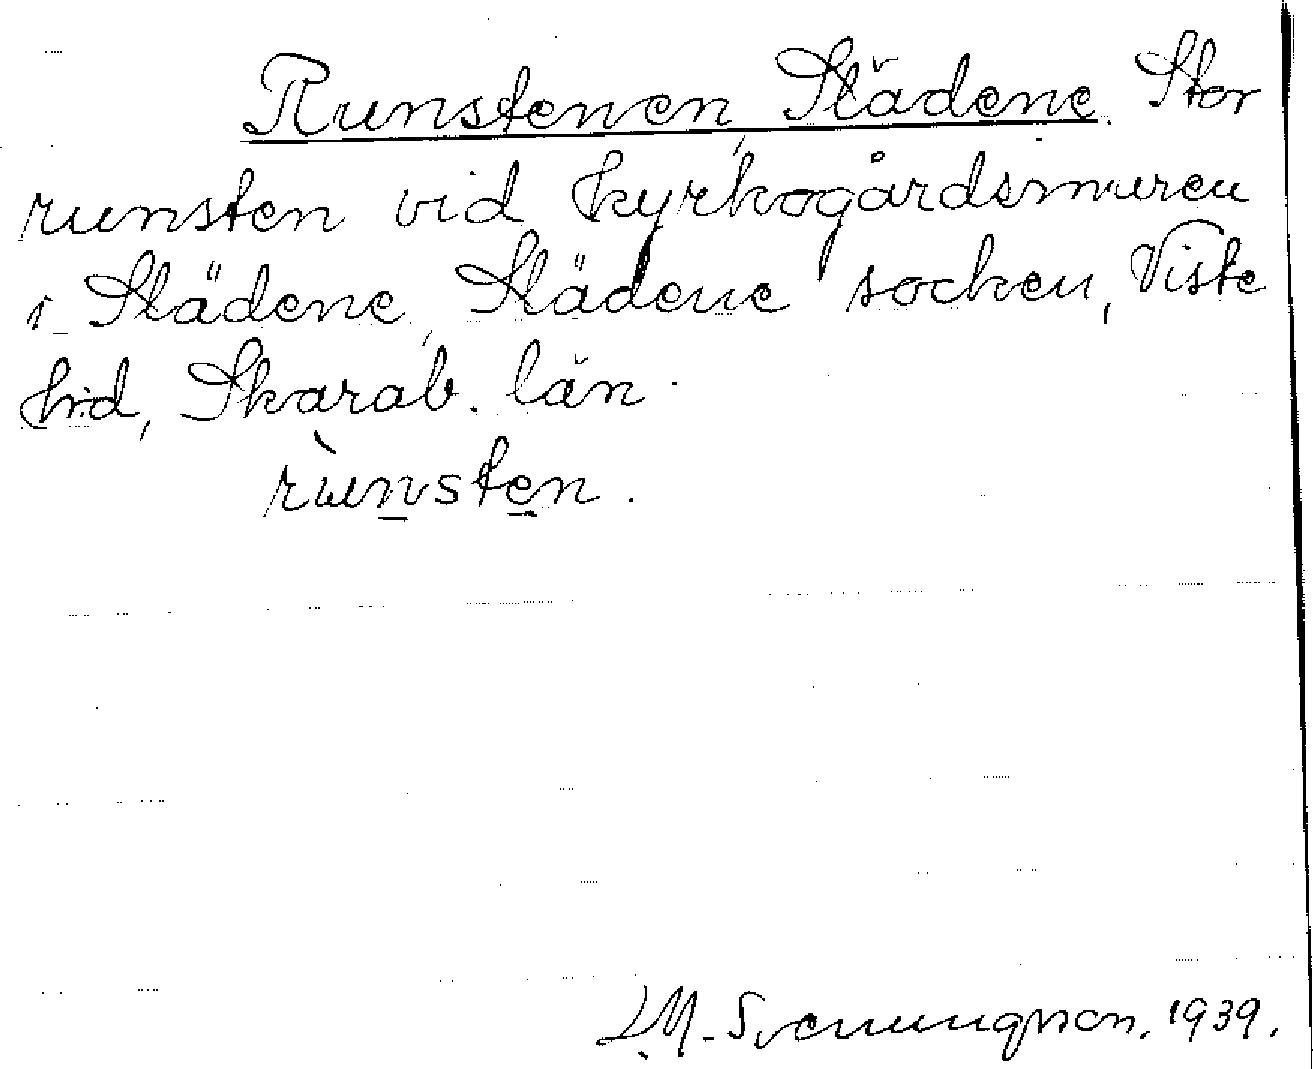 Runstenen, Slädene. Stor
runsten vid kyrkogårdsmuren
i Slädene, Slädene socken, Viste
hrd, Skarab. län.
rùnsten.
L.M. Svenungsson. 1939.